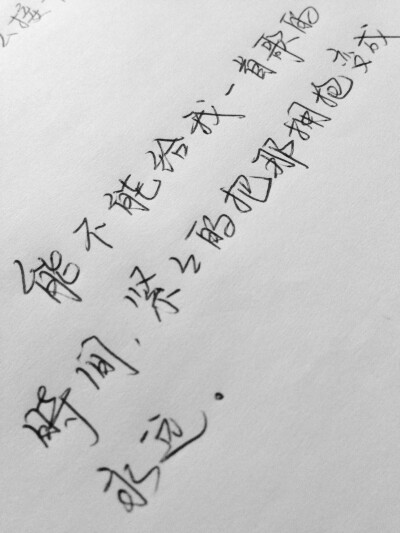 能不能给我一首歌的
时间，紧々的把那拥抱变成
永远。